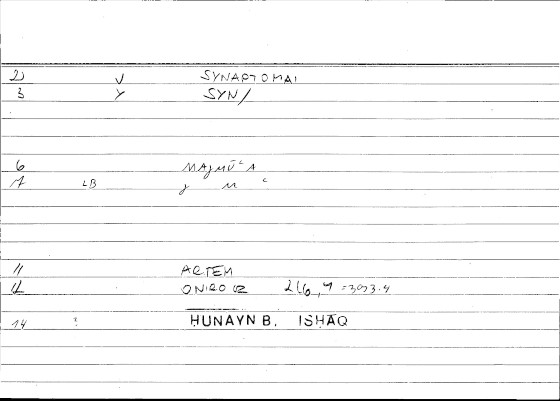 2) V SYNAPTOMAI
3 Y SYN/
6 MAJMŪʿA
7 LB J M ʿ
11 ARTEM
12 ONIROCR 216,7 = 393.4
14 HUNAYN B. ISHAQ